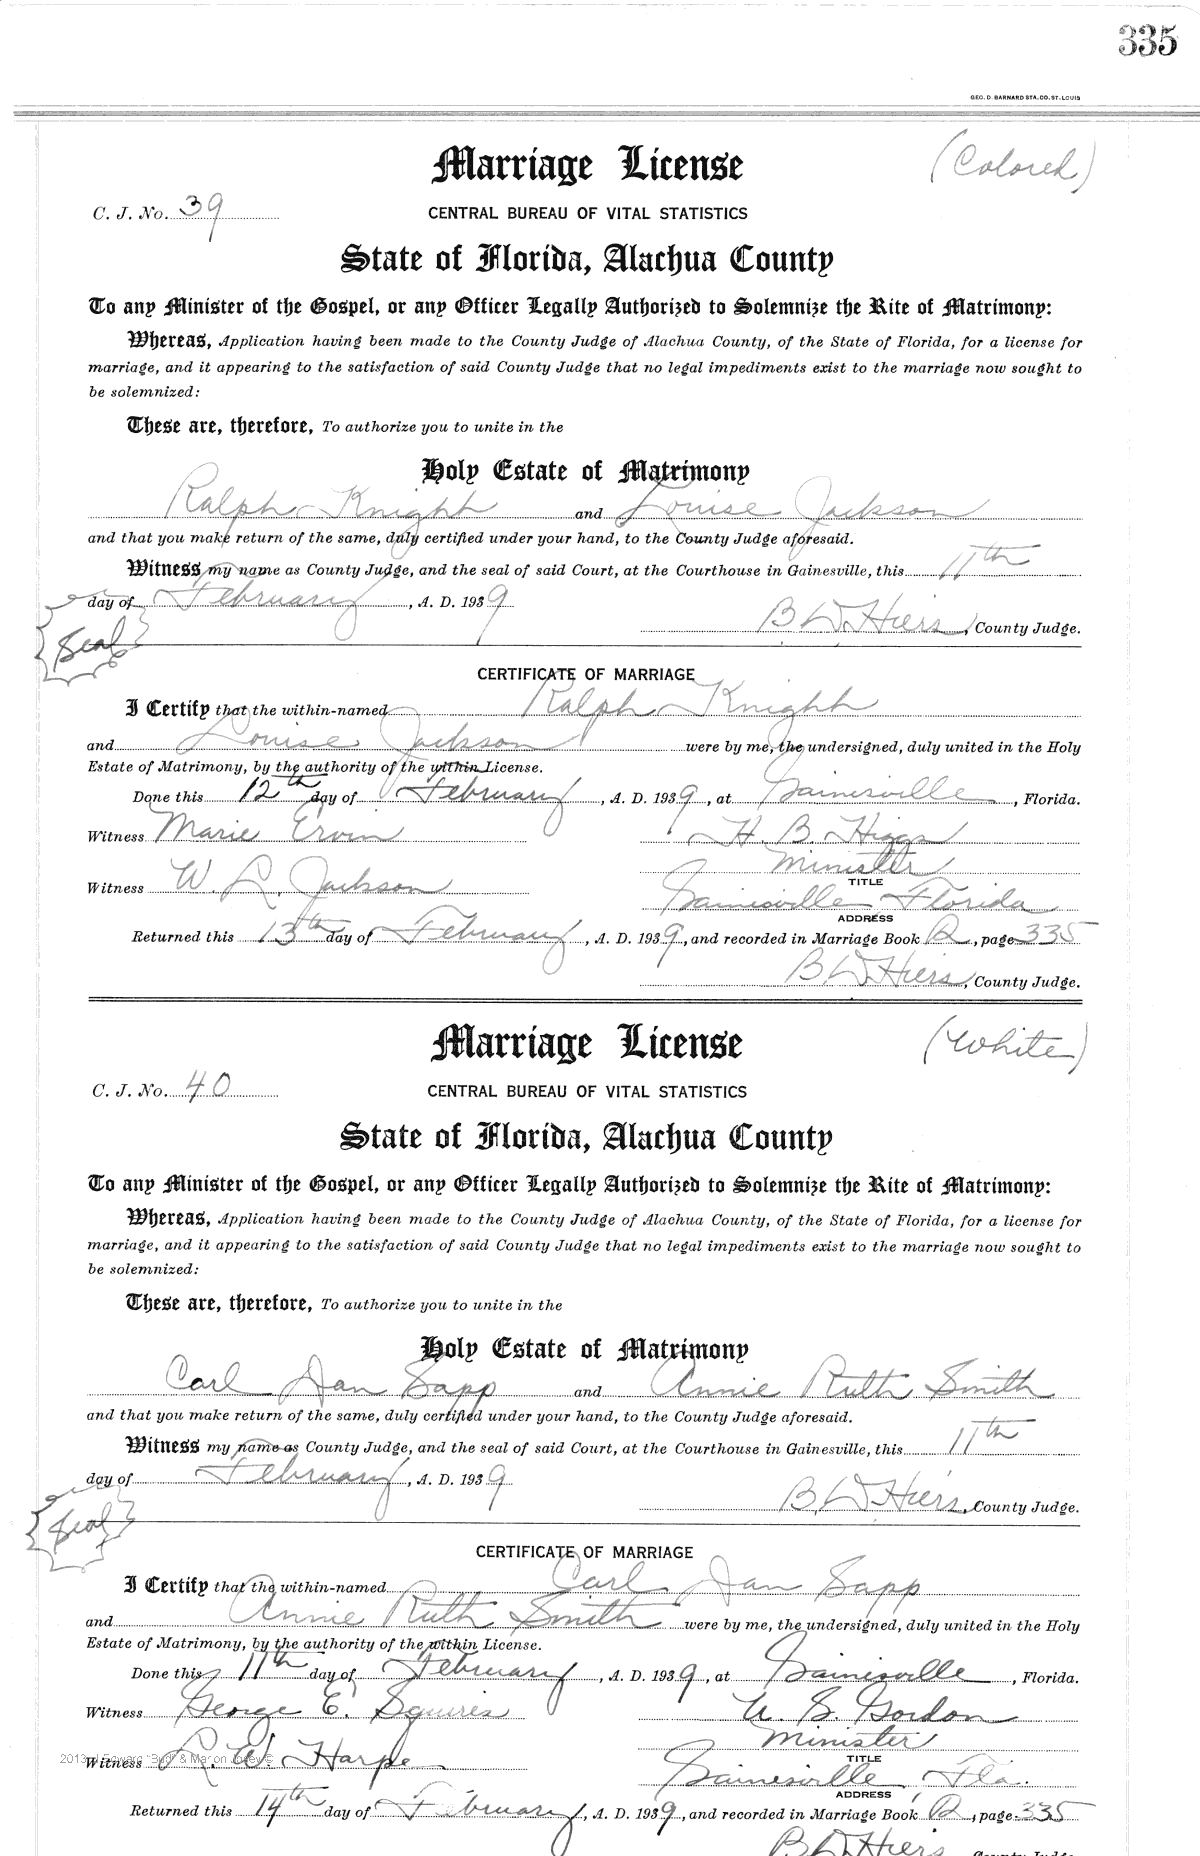 335
GEO. D. BARNARD STA. CO. ST. LOUIS
Marriage License (Colored)
C. J. No. 39 CENTRAL BUREAU OF VITAL STATISTICS
State of Florida, Alachua County
To any Minister of the Gospel, or any Officer Legally Authorized to Solemnize the Rite of Matrimony:
Whereas, Application having been made to the County Judge of Alachua County, of the State of Florida, for a license for
marriage, and it appearing to the satisfaction of said County Judge that no legal impediments exist to the marriage now sought to
be solemnized:
These are, therefore, To authorize you to unite in the
Holy Estate of Matrimony
Ralph Knight and Louise Jackson
and that you make return of the same, duly certified under your hand, to the County Judge aforesaid.
Witness my name as County Judge, and the seal of said Court, at the Courthouse in Gainesville, this 11th
day of February, A. D. 1939
Seal B D Hiers, County Judge.
CERTIFICATE OF MARRIAGE
I Certify that the within-named Ralph Knight
and Louise Jackson were by me, the undersigned, duly united in the Holy
Estate of Matrimony, by the authority of the within License.
Done this 12th day of February, A. D. 1939, at Gainesville, Florida.
Witness Marie Ervin H. B. Higgs
Minister
Witness W. L. Jackson TITLE
Gainesville Florida
ADDRESS
Returned this 13th day of February, A. D. 1939, and recorded in Marriage Book R, page 335
B D Hiers, County Judge.
Marriage License (White)
C. J. No. 40 CENTRAL BUREAU OF VITAL STATISTICS
State of Florida, Alachua County
To any Minister of the Gospel, or any Officer Legally Authorized to Solemnize the Rite of Matrimony:
Whereas, Application having been made to the County Judge of Alachua County, of the State of Florida, for a license for
marriage, and it appearing to the satisfaction of said County Judge that no legal impediments exist to the marriage now sought to
be solemnized:
These are, therefore, To authorize you to unite in the
Holy Estate of Matrimony
Carl Dan Sapp and Annie Ruth Smith
and that you make return of the same, duly certified under your hand, to the County Judge aforesaid.
Witness my name as County Judge, and the seal of said Court, at the Courthouse in Gainesville, this 11th
day of February, A. D. 1939
Seal B D Hiers, County Judge.
CERTIFICATE OF MARRIAGE
I Certify that the within-named Carl Dan Sapp
and Annie Ruth Smith were by me, the undersigned, duly united in the Holy
Estate of Matrimony, by the authority of the within License.
Done this 11th day of February, A. D. 1939, at Gainesville, Florida.
Witness George E. Squires U. S. Gordon
Minister
Witness R. W. Harpe TITLE
Gainesville, Fla.
ADDRESS
Returned this 14th day of February, A. D. 1939, and recorded in Marriage Book R, page 335
B D Hiers